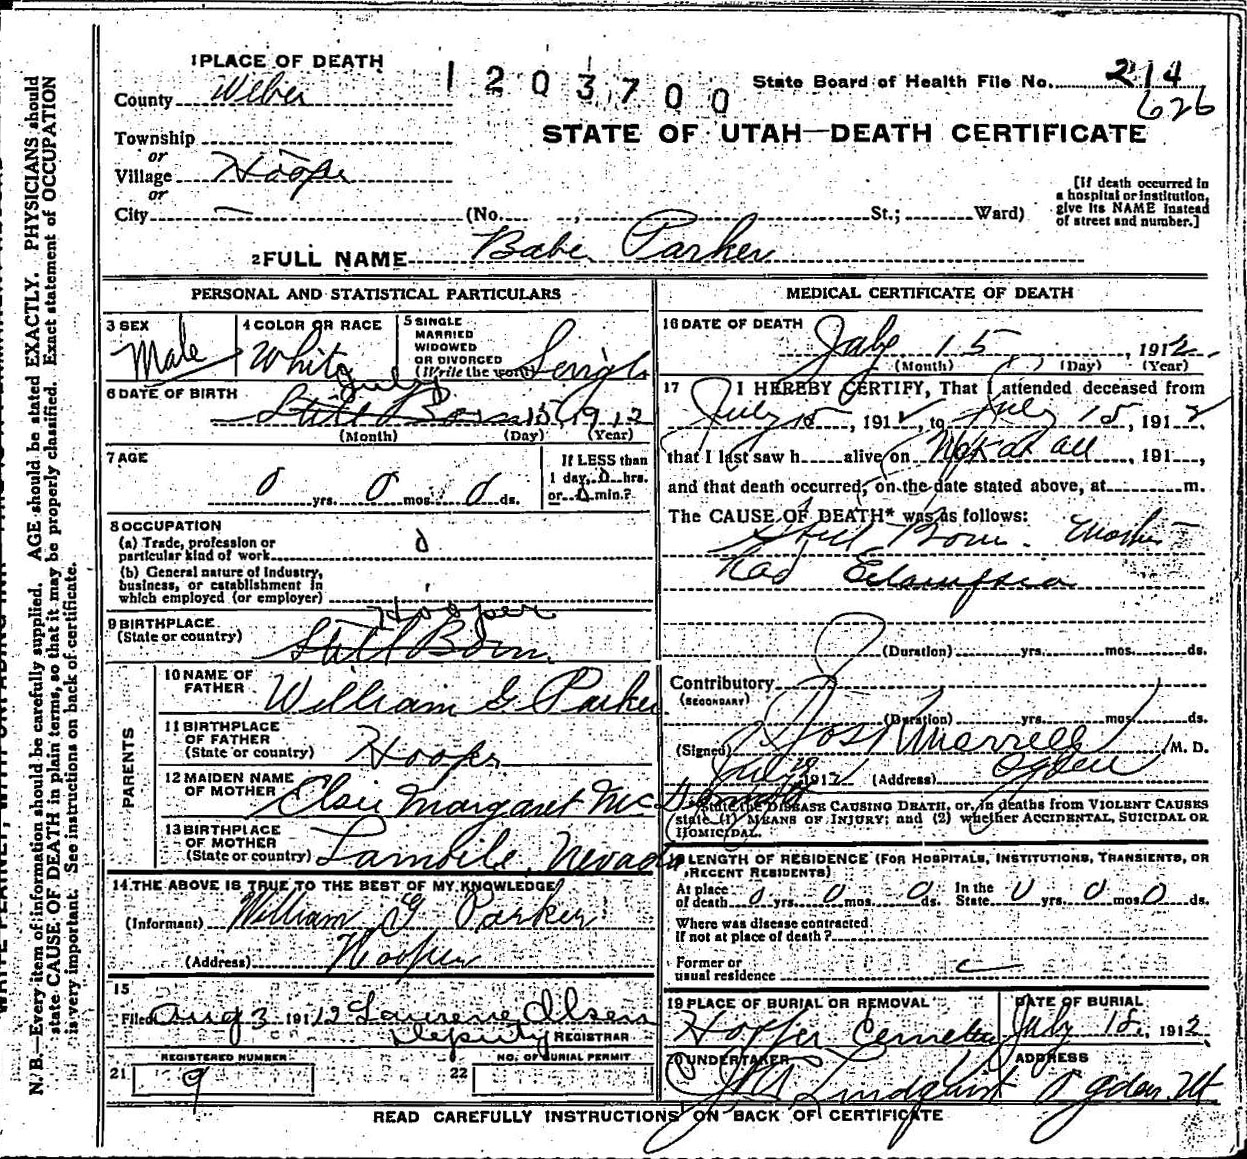 1 PLACE OF DEATH
1 2 0 3 7 0 0
State Board of Health File No. 214
626
County Weber
STATE OF UTAH—DEATH CERTIFICATE
Township
or
Village Hooper
or
City —
(No. , St.; Ward)
[If death occurred in
a hospital or institution,
give its NAME instead
of street and number.]
2 FULL NAME Babe Parker
PERSONAL AND STATISTICAL PARTICULARS
3 SEX
Male
4 COLOR OR RACE
White
5 SINGLE
MARRIED
WIDOWED
OR DIVORCED
(Write the word) Single
6 DATE OF BIRTH
July
Still Born 15, 1912
(Month) (Day) (Year)
7 AGE
0 yrs. 0 mos. 0 ds.
If LESS than
1 day, 0 hrs.
or 0 min.?
8 OCCUPATION
(a) Trade, profession or
particular kind of work 0
(b) General nature of Industry,
business, or establishment in
which employed (or employer)
9 BIRTHPLACE
(State or country)
Hooper
Still Born
PARENTS
10 NAME OF
FATHER
William G Parker
11 BIRTHPLACE
OF FATHER
(State or country)
Hooper
12 MAIDEN NAME
OF MOTHER
Elsie Margaret Mc
13 BIRTHPLACE
OF MOTHER
(State or country) Lamoile, Nevada
14 THE ABOVE IS TRUE TO THE BEST OF MY KNOWLEDGE
(Informant) William G Parker
(Address) Hooper
15
Filed Aug 3 1912 Laurene Olsen
Deputy REGISTRAR
REGISTERED NUMBER
21 9
NO. OF BURIAL PERMIT
22
MEDICAL CERTIFICATE OF DEATH
16 DATE OF DEATH
July 15, 1912
(Month) (Day) (Year)
17 I HEREBY CERTIFY, That I attended deceased from
July 15, 1912, to July 15, 1912,
that I last saw h alive on Not at all, 191 ,
and that death occurred, on the date stated above, at m.
The CAUSE OF DEATH* was as follows:
Still Born. Mother
had Eclampsia
(Duration) yrs. mos. ds.
Contributory
(SECONDARY)
(Duration) yrs. mos. ds.
(Signed) Jos R Morrell M. D.
July 1912 (Address) Ogden
*State the DISEASE CAUSING DEATH, or, in deaths from VIOLENT CAUSES
state (1) MEANS OF INJURY; and (2) whether ACCIDENTAL, SUICIDAL OR
HOMICIDAL.
18 LENGTH OF RESIDENCE (FOR HOSPITALS, INSTITUTIONS, TRANSIENTS, OR
RECENT RESIDENTS)
At place
of death 0 yrs. 0 mos. 0 ds.
In the
State 0 yrs. 0 mos. 0 ds.
Where was disease contracted
If not at place of death?
Former or
usual residence
19 PLACE OF BURIAL OR REMOVAL
Hooper Cemetery
DATE OF BURIAL
July 18, 1912
20 UNDERTAKER
Lindquist
ADDRESS
Ogden Ut
READ CAREFULLY INSTRUCTIONS ON BACK OF CERTIFICATE
N. B.—Every item of information should be carefully supplied. AGE should be stated EXACTLY. PHYSICIANS should
state CAUSE OF DEATH in plain terms, so that it may be properly classified. Exact statement of OCCUPATION
is very important. See instructions on back of certificate.